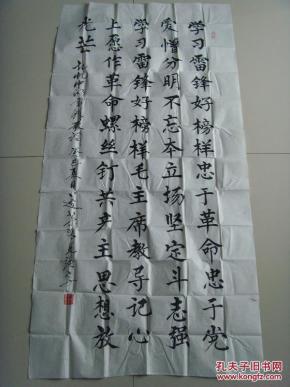 学习雷锋好榜样忠于革命忠于党
爱憎分明不忘本立场坚定斗志强
学习雷锋好榜样毛主席教导记心
上愿作革命螺丝钉共产主思想放
光芒
孔夫子旧书网